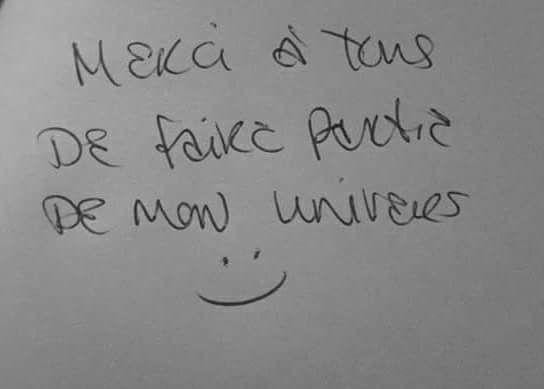 MERCi à tous
DE faire partie
DE MON univers